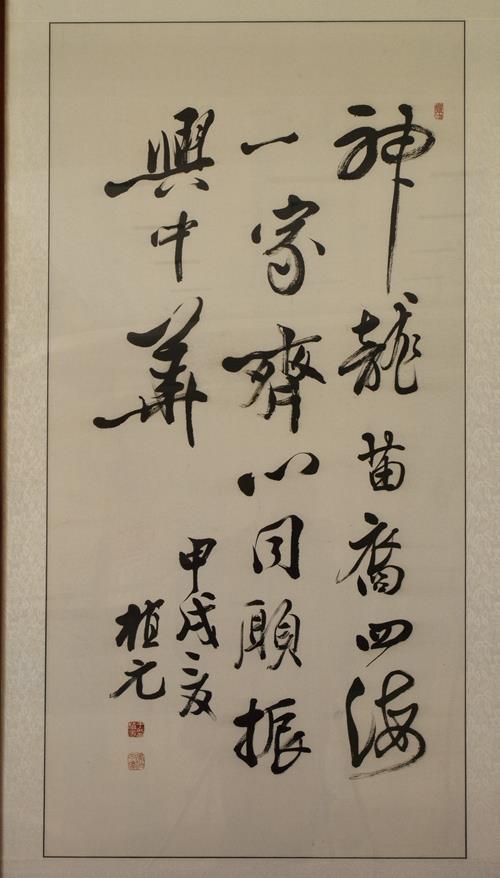 神龍苗裔四海
一家齊心同願振
興中華
甲戌之夏
植元